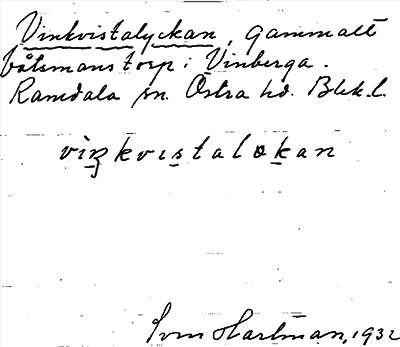 Vinkvistalyckan, gammalt
båtsmanstorp i Vinberga.
Ramdala sn. Östra hd. Blek.l.
viŋkvistalokan
Sven Hartman, 1932